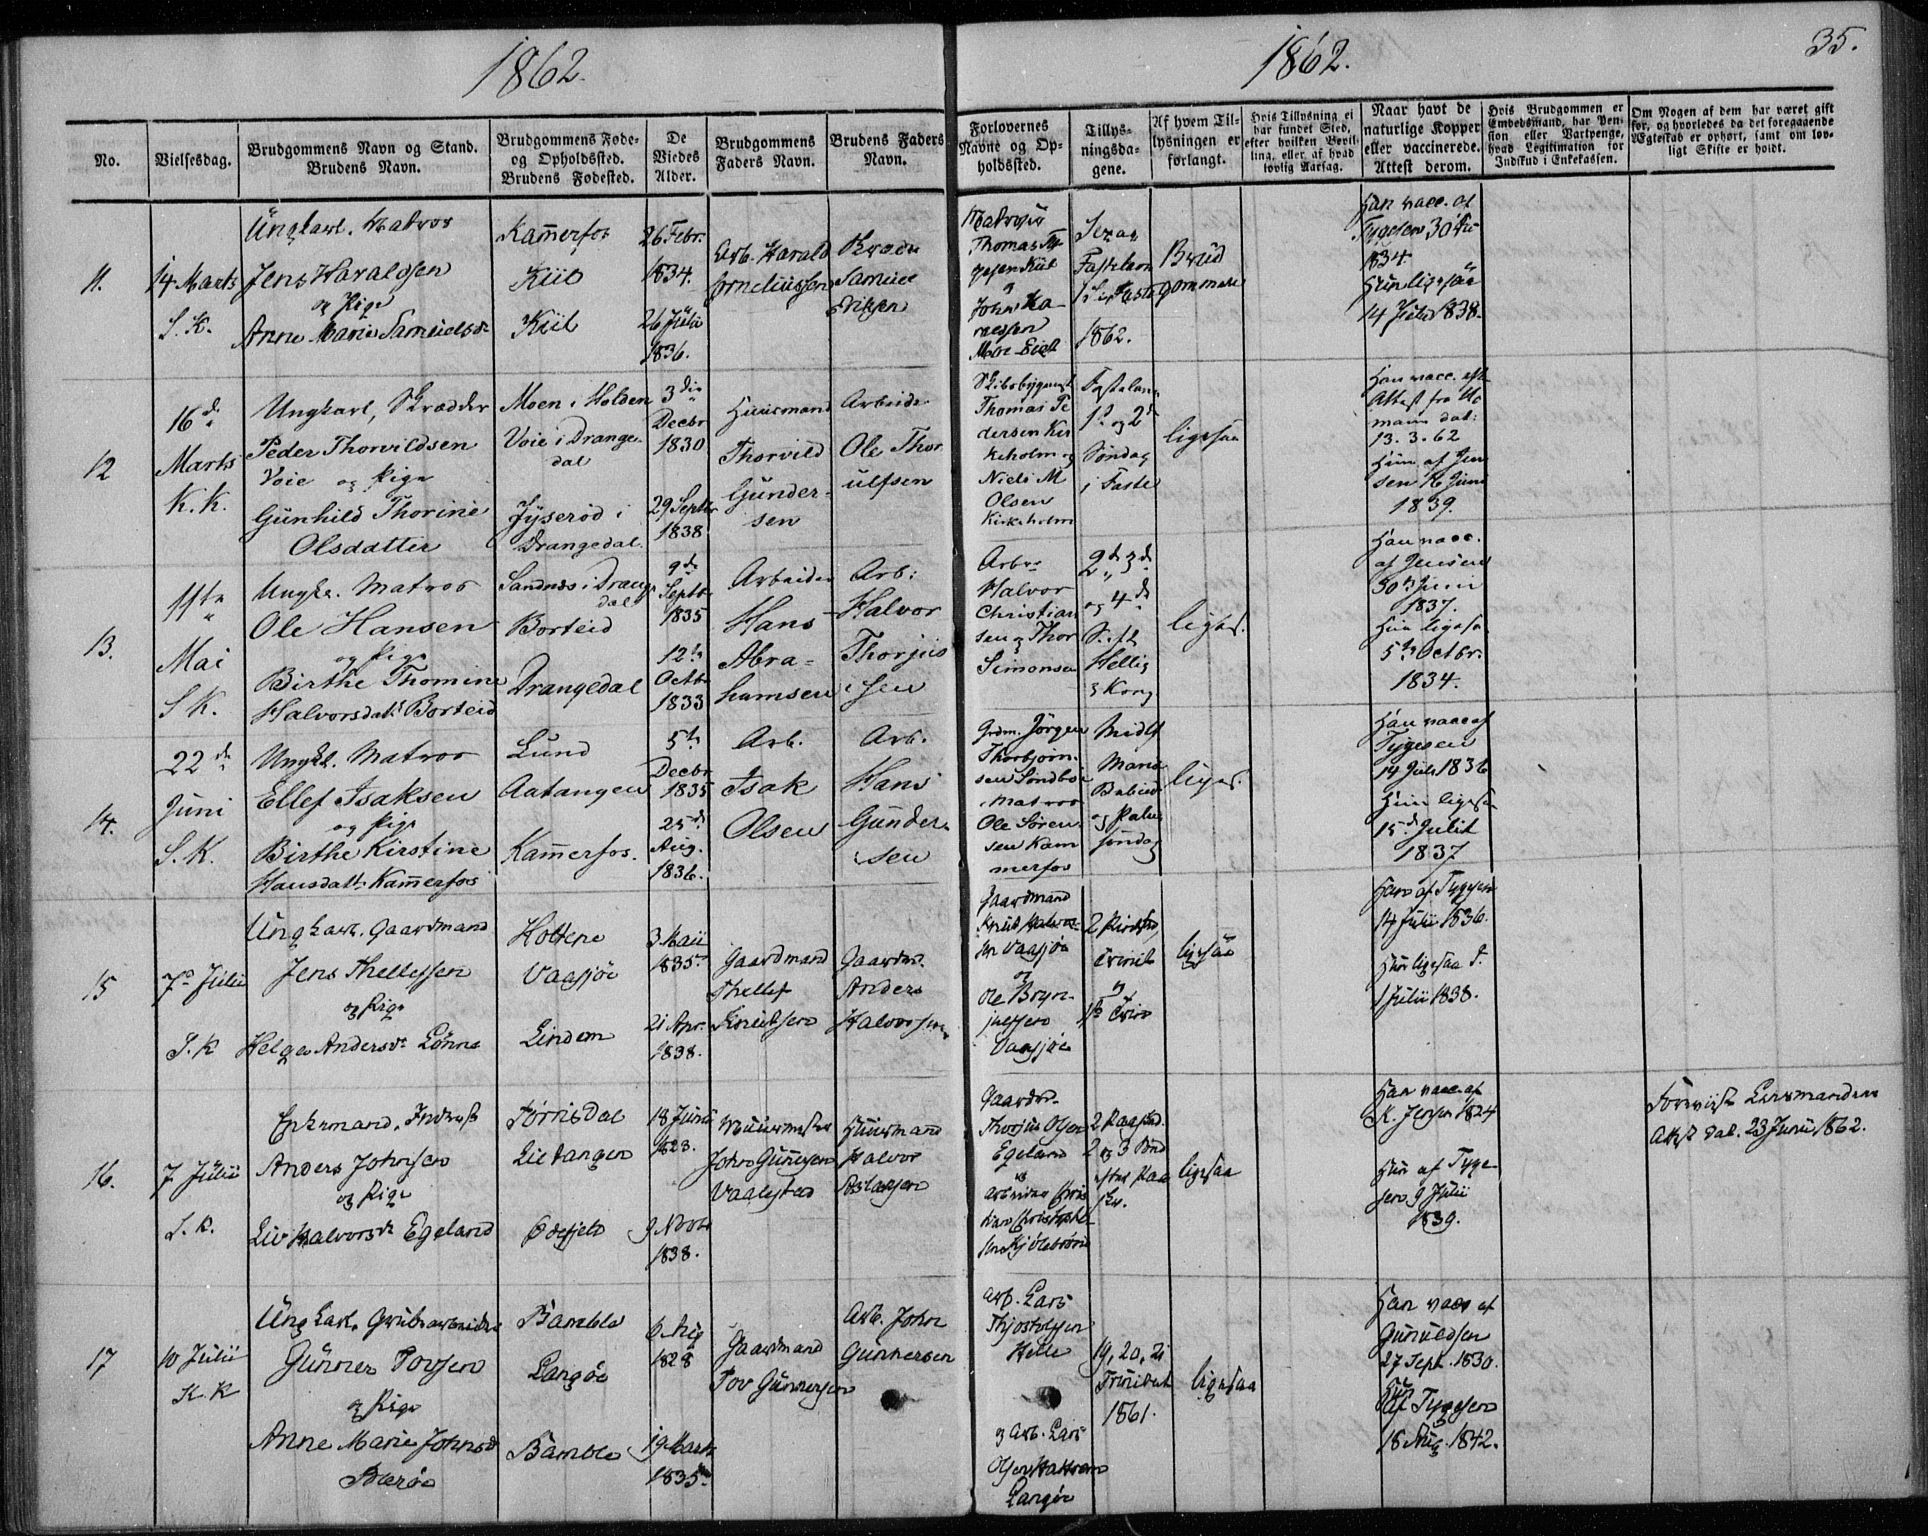 1862.
1862.
35.
No.
Vielsesdag.
Brudgommens Navn og Stand.
Brudens Navn.
Brudgommens Føde-
og Opholdssted.
Brudens Fødested.
De
Viedes
Alder.
Brudgommens
Faders Navn.
Brudens Faders
Navn.
Forlovernes
Navne og Op-
holdssted.
Tillys-
ningsda-
gene.
Af hvem Til-
lysningen er
forlangt.
Hvis Tillysning ei
har fundet Sted,
efter hvilken Bevil-
ling, eller af hvad
lovlig Aarsag.
Naar havt de
naturlige Kopper
eller vaccinerede.
Attest derom.
Hvis Brudgommen er
Embedsmand, har Pen-
sion eller Vartpenge,
hvad Legitimation for
Indskud i Enkekassen.
Om Nogen af dem har været gift
før, og hvorledes da det foregaaende
Ægteskab er ophørt, samt om lov-
ligt Skifte er holdt.
11.
14 Marts
S. K.
Ungkarl. Matros
Jens Haraldsen
og Pige
Anne Marie Samuelsdr
Kammerfos
Kiil
Kiil
26 Febr.
1834.
26 Julii
1836.
Arb. Harald
Corneliussen
Samuel
Eriksen
Thomas Ty-
gesen Kiil
og
John Ha-
raldsen
Fastelavn
1862.
Brud
gommen
Han vacc. af
Tygesen 30
1834.
Hun ligesaa
14 Julii 1838.
12
16 de
Marts
K. K.
Ungkarl, Skrædder
Peder Thorvildsen
Voie og Pige
Gunhild Thorine
Olsdatter
Moen i Holden
Voie i Drange-
dal
Drangedal.
3 die
Decbr
1830
29 Septbr
1838
Huusmand
Thorvild
Gunder-
sen
Arbeider
Ole Thor
ulfsen
Thomas Pe
dersen Kir
keholm og
Niels M
Olsen
Kirkeholm
Fastelavn
1ste og 2den
Søndag
i Faste
ligesaa
Han vacc. eft
Attest fra
dat:
13. 3. 62
Hun af Jen
sen 16 Juni
1839.
13.
11te
Mai
S K.
Ungk. Matros
Ole Hansen
og Pige
Birthe Thomine
Halvorsdatt. Borteid
Sandnes i Drange
dal
Borteid
Drangedal
9 de
Septbr
1835
12 te
Octbr
1833
Arbeider
Hans
Abra-
hamsen
Arb:
Halvor
Thorjus
sen
Arbr
Halvor
Christian
sen og Thor
Simonsen
2 den 3 de
og 4 de
Hellig
3 Kong
liges.
Han vacc.
af Jensen
30 Juni
1837.
Hun ligesa
5te Octbr.
1834.
14.
22 de
Juni
S. K.
Ungkl. Matros
Ellef Isaksen
og Pige
Birthe Kirstine
Hansdatt. Kammerfos
Lund
Aatangen
Kammerfos.
5 te
Decbr
1835
25 de
Aug.
1836.
Arb.
Isak
Olsen
Arb.
Hans
Gunder-
sen
Grdm. Jørgen
Thorbjørn-
sen
Matros
Ole Søren-
sen Kam
merfos
Midf
Maria
og Palm
søndag
liges.
Han vacc af
Tygesen
14 Juli 1836
Hun ligesa
15 de Juli
1837
15
7de Julii
S. K
Ungkarl. Gaardmand
Jens Thellefsen
og Pige
Helge Andersdr Lønne
Holtene
Vaasjøe
Lindem
3 Maii
1835
21 Apr.
1838.
Gaardmand
Thellef
Knudsen
Gaardm.
Anders
Halvorsen
Gaardmand
Knud Halvor-
sen Vaasjøe
og
Ole Bryn-
julfsen
Vaasjøe
og
ligesaa
Han af Tygesen
14 Julii 1836.
Hun ligesaa d.
1 Julii 1838.
16.
7 Julii
S. K.
Enkemand. Inderst
Anders Johnsen
og Pige
Liv Halvorsdr Egeland
Tørrisdal
Lietangen
18 Junii
1823.
9 Novbr
1838.
John Gunnersen
Huusmand
Halvor
Aslaksen
Gaardm.
Thorjus Olsen
Egeland
og
Arbeider Chris
tian Christophe
2 og 3
ligesaa
Han vacc. af
K. Jensen 1824
Hun af Tyge-
sen 9 Julii
1839.
Forevist Lensmandens
Attest dat. 23 Junii 1862.
17
10 Julii
K. K
Ungkarl. Grubearbeider
Gunner Tovsen
og Pige
Anne Marie Johnsd
Bærøe
Bamble
Langøe
Bamble
6 Aug
1828
19 Marts
1835
Gaardmand
Tov Gunnersen
Arb. John
Gunnersen
Arb. Lars
Thjostolfsen
Helle
og Arb. Lars
Olsen
Langøe
19, 20, 21
Trinitat
1861.
ligesaa
Han vacc af
Gunuldsen
27 Sept. 1830.
af Tygesen
18 Aug. 1842.